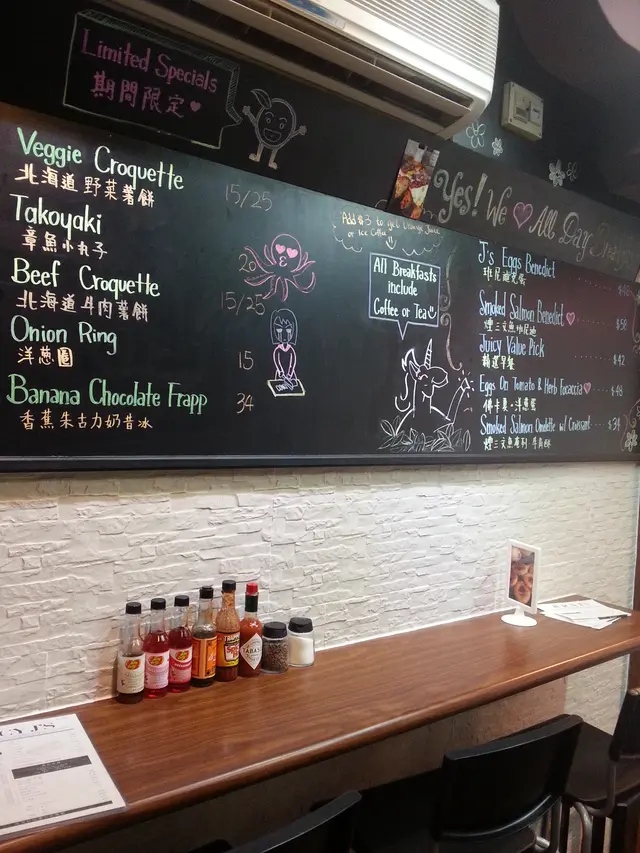 Limited Specials
期間限定
Veggie Croquette
北海道野菜薯餅
15/25
Takoyaki
章魚小丸子
20
Beef Croquette
北海道牛肉薯餅
15/25
Onion Ring
洋蔥圈
15
Banana Chocolate Frapp
香蕉朱古力奶昔冰
34
Yes! We All Day
Add $3 to get Orange Juice
or Ice Coffee
All Breakfasts
include
Coffee or Tea
J's Eggs Benedict
班尼迪克蛋
$48
Smoked Salmon Benedict
煙三文魚班尼迪
$58
Juicy Value Pick
精選早餐
$42
Eggs On Tomato & Herb Focaccia
$48
Smoked Salmon Omelette w/ Croissant
$34
TABASCO